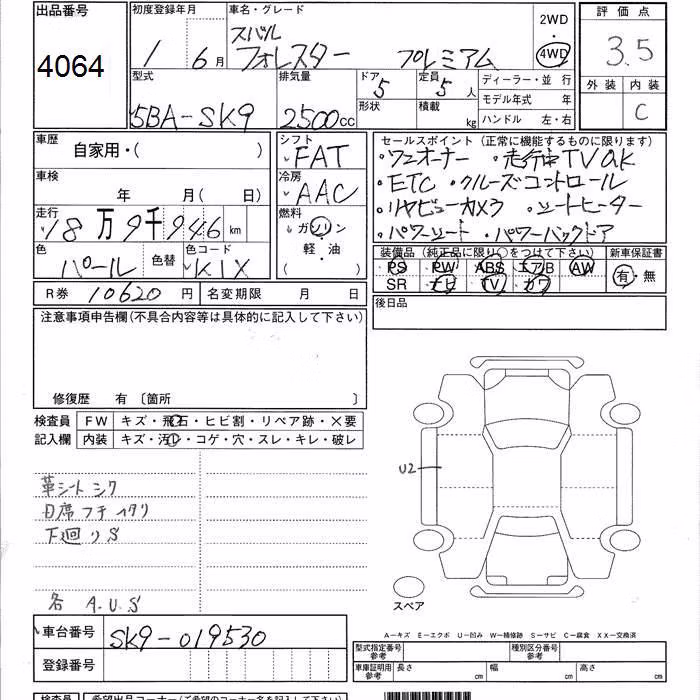 出品番号 初度登録年月 車名・グレード 2WD・4WD 評価点
4064 1年 6月 スバル
フォレスター プレミアム 3.5
型式 排気量 ドア 5 定員 5人 ディーラー・並行 外装 内装
形状 積載 kg モデル年式 年 C
5BA-SK9 2500cc ハンドル 左・右
車歴 シフト セールスポイント (正常に機能するものに限ります)
自家用・( ) FAT ・ワンオーナー ・走行中TV OK
車検 冷房 ・ETC ・クルーズコントロール
年 月( 日) AAC ・リヤビューカメラ ・シートヒーター
走行 燃料 ・パワーシート ・パワーバックドア
18万9千946km ガソリン
色 色替 色コード 軽・油 装備品 (純正品に限り○をつけて下さい) 新車保証書
パール K1X ( ) PS PW ABS エアB AW 有・無
R券 10620円 名変期限 月 日 SR ナビ TV カワ
注意事項申告欄(不具合内容等は具体的に記入して下さい) 後日品
修復歴 有 〔箇所 〕
検査員 FW キズ・飛石・ヒビ割・リペア跡・×要
記入欄 内装 キズ・汚れ・コゲ・穴・スレ・キレ・破レ
U2
革シート シワ
下廻り S
各 A.U.S
スペア
A=キズ E=エクボ U=凹み W=補修跡 S=サビ C=腐食 XX=交換済
車台番号 SK9-019530
型式指定番号 参考 種別区分番号 参考
登録番号 車庫証明用 参考 長さ cm 幅 cm 高さ cm
検査員 希望出品コーナー(ご希望のコーナー名を記入下さい)